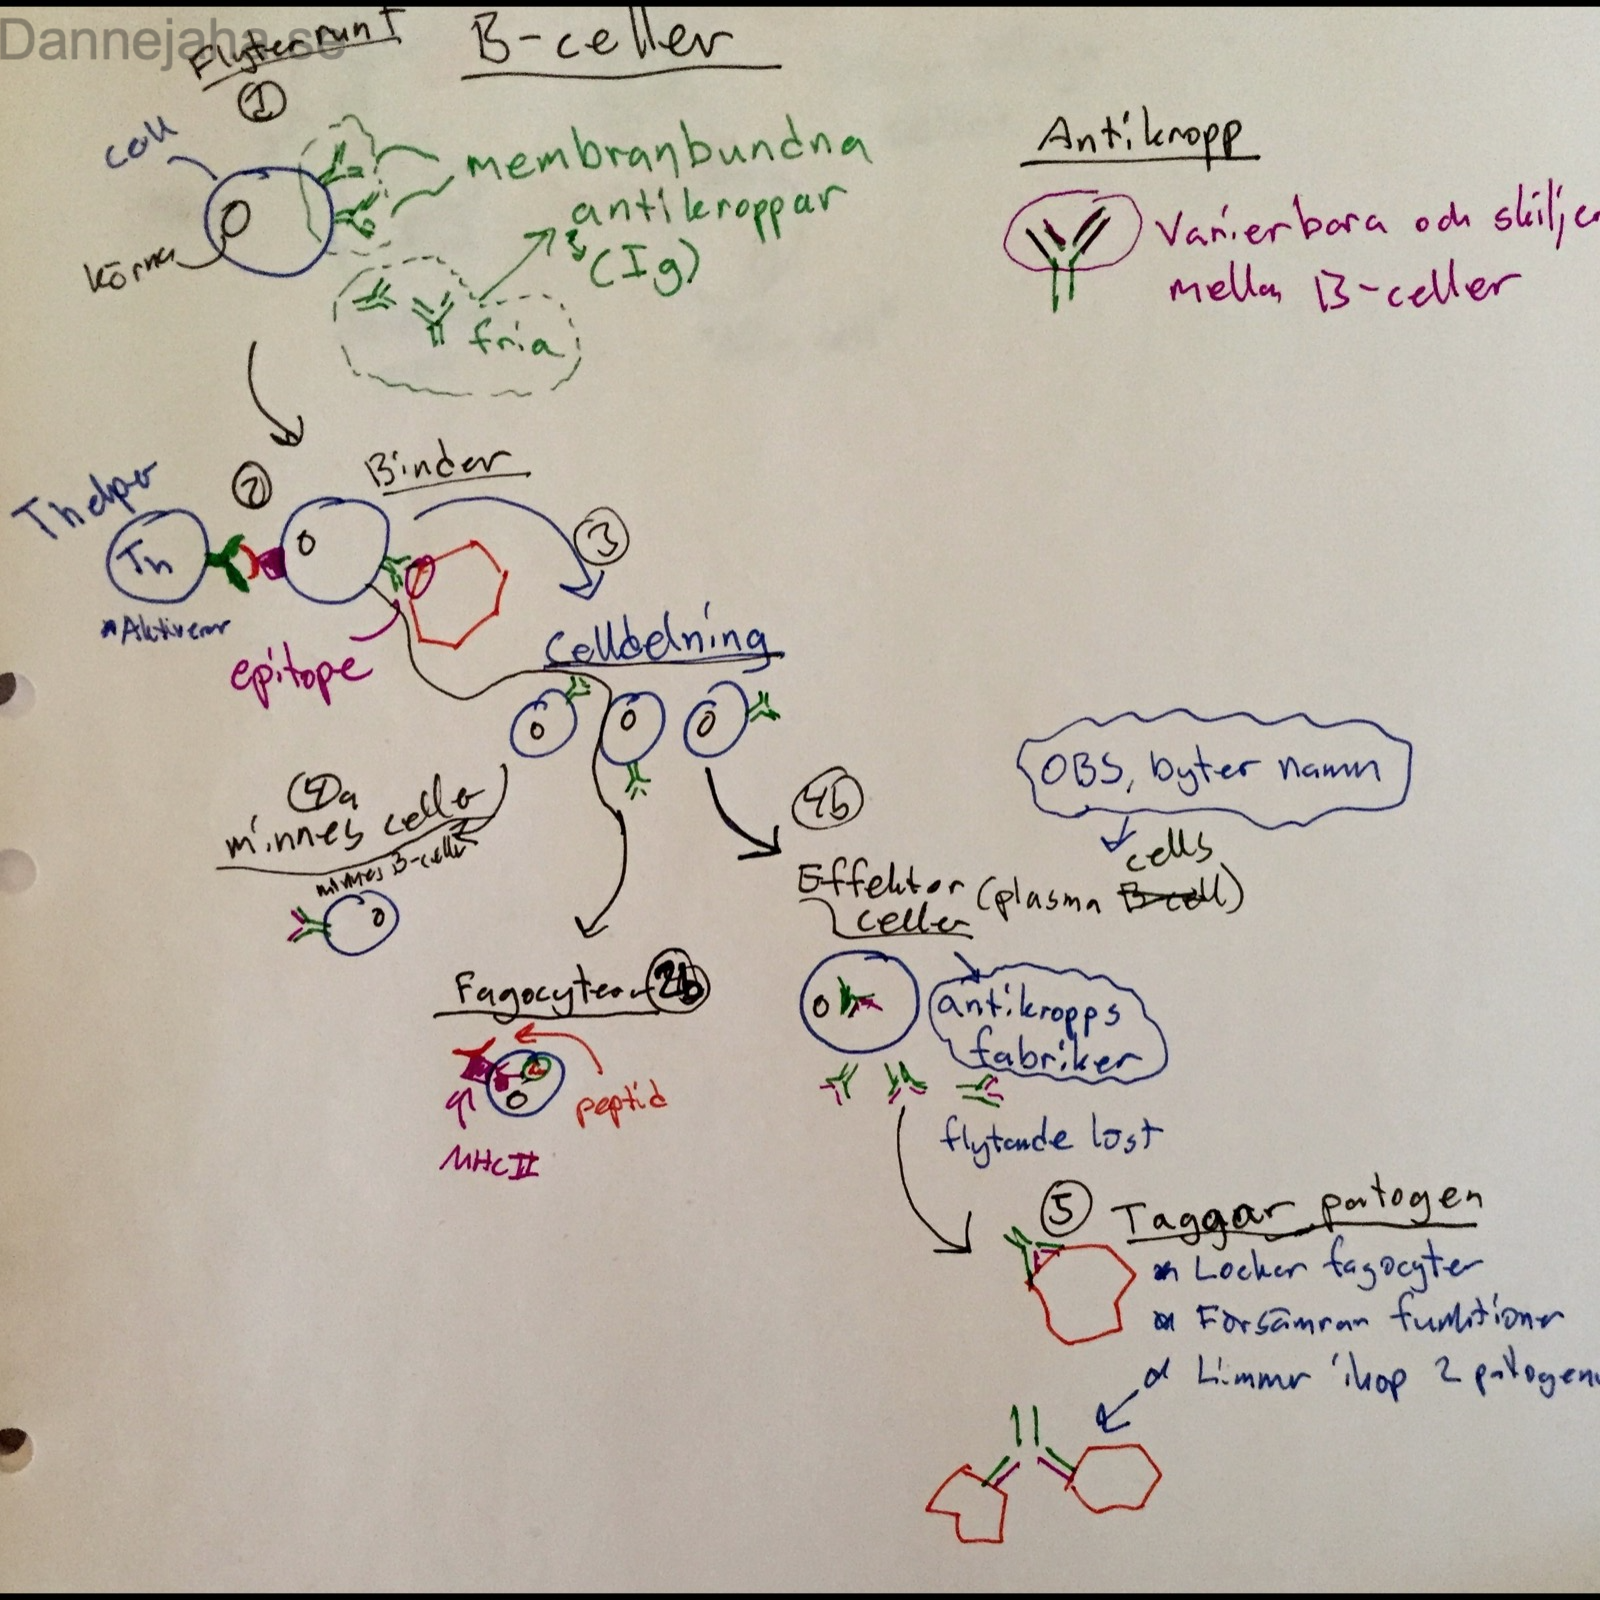 Dannejaha.se
Flyter runt
B-celler
1
cell
kärna
membranbundna
antikroppar
(Ig)
fria
Antikropp
Varierbara och skiljer
mellan B-celler
2
Binder
T helper
Th
* Aktiverar
epitope
3
Celldelning
4a
minnes celler
minnes B-celler
4b
OBS, byter namn
cells
Effektor (plasma B-cell)
celler
antikropps
fabriker
flytande löst
Fagocyterar 2b
peptid
MHC II
5 Taggar patogen
* Lockar fagocyter
* Försämrar funktioner
* Limmar ihop 2 patogener